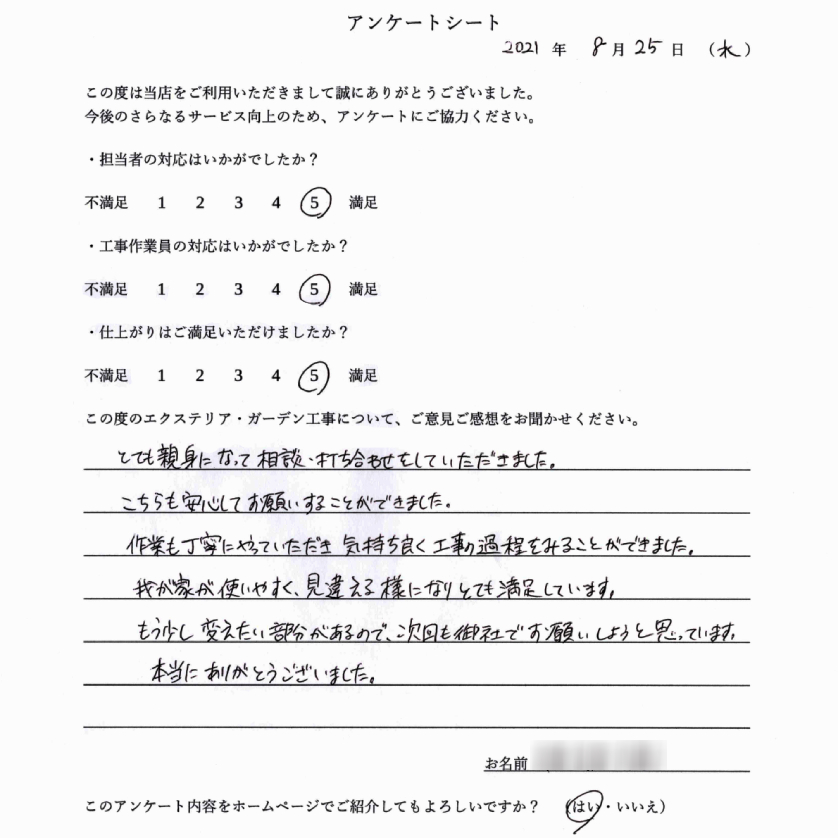 アンケートシート
2021 年 8 月 25 日 （水）
この度は当店をご利用いただきまして誠にありがとうございました。
今後のさらなるサービス向上のため、アンケートにご協力ください。
・担当者の対応はいかがでしたか？
不満足 1 2 3 4 5 満足
・工事作業員の対応はいかがでしたか？
不満足 1 2 3 4 5 満足
・仕上がりはご満足いただけましたか？
不満足 1 2 3 4 5 満足
この度のエクステリア・ガーデン工事について、ご意見ご感想をお聞かせください。
とても親身になって相談・打ち合わせをしていただきました。
こちらも安心してお願いすることができました。
作業も丁寧にやっていただき気持ち良く工事の過程をみることができました。
我が家が使いやすく、見違える様になりとても満足しています。
もう少し変えたい部分があるので、次回も御社でお願いしようと思っています。
本当にありがとうございました。
お名前
このアンケート内容をホームページでご紹介してもよろしいですか？ （はい・いいえ）